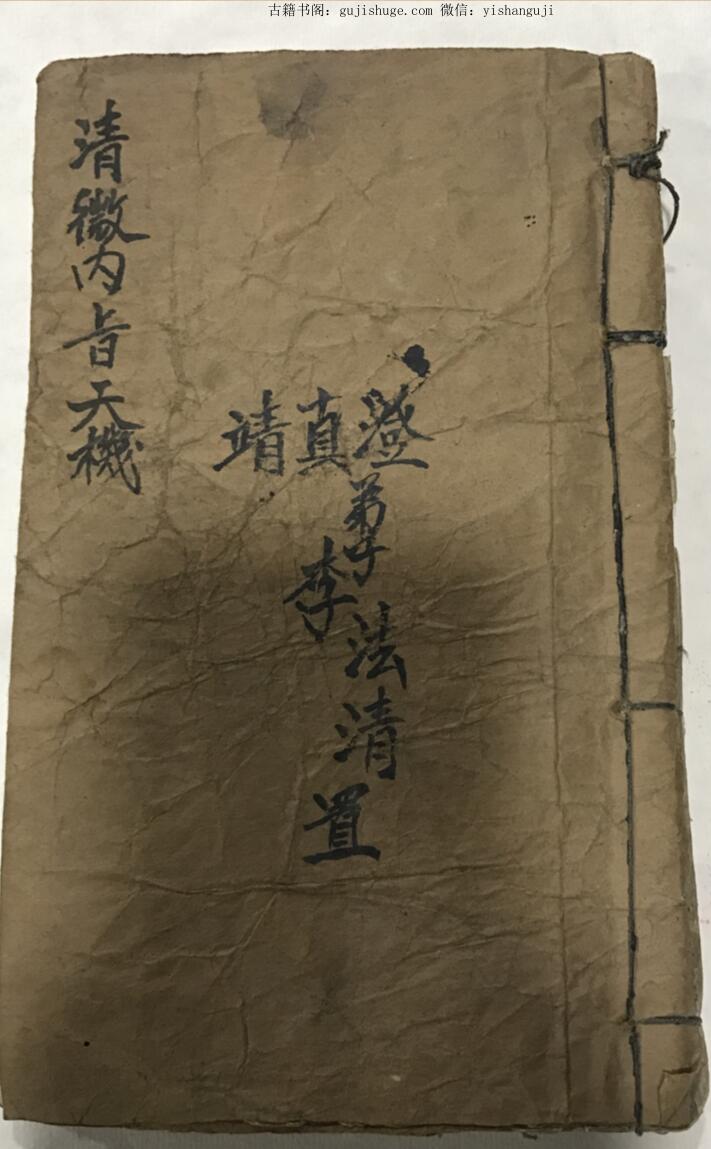 古籍书阁：gujishuge.com 微信：yishanguji
清微内旨天機
澄真靖
弟子
李法清置